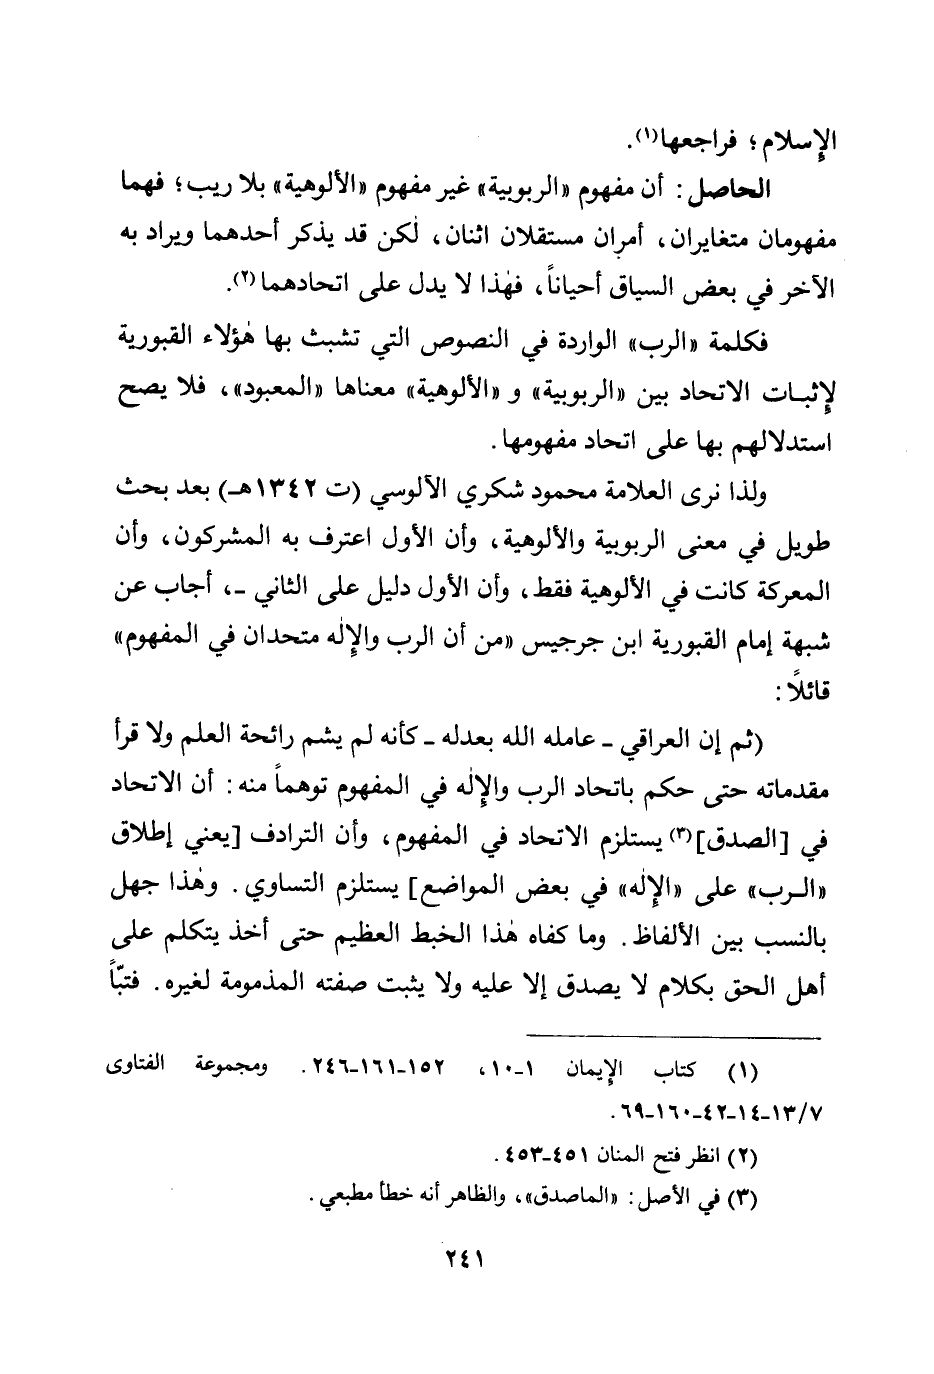 الإسلام؛ فراجعها(١).
الحاصل: أن مفهوم «الربوبية» غير مفهوم «الألوهية» بلا ريب؛ فهما
مفهومان متغايران، أمران مستقلان اثنان، لٰكن قد يذكر أحدهما ويراد به
الآخر في بعض السياق أحياناً، فهٰذا لا يدل على اتحادهما(٢).
فكلمة «الرب» الواردة في النصوص التي تشبث بها هٰؤلاء القبورية
لإثبات الاتحاد بين «الربوبية» و «الألوهية» معناها «المعبود»، فلا يصح
استدلالهم بها على اتحاد مفهومها.
ولذا نرى العلامة محمود شكري الآلوسي (ت ١٣٤٢هـ) بعد بحث
طويل في معنى الربوبية والألوهية، وأن الأول اعترف به المشركون، وأن
المعركة كانت في الألوهية فقط، وأن الأول دليل على الثاني -، أجاب عن
شبهة إمام القبورية ابن جرجيس «من أن الرب والإلٰه متحدان في المفهوم»
قائلاً:
(ثم إن العراقي - عامله الله بعدله - كأنه لم يشم رائحة العلم ولا قرأ
مقدماته حتى حكم باتحاد الرب والإلٰه في المفهوم توهماً منه: أن الاتحاد
في [الصدق](٣) يستلزم الاتحاد في المفهوم، وأن الترادف [يعني إطلاق
«الرب» على «الإلٰه» في بعض المواضع] يستلزم التساوي. وهٰذا جهل
بالنسب بين الألفاظ. وما كفاه هٰذا الخبط العظيم حتى أخذ يتكلم على
أهل الحق بكلام لا يصدق إلا عليه ولا يثبت صفته المذمومة لغيره. فتبّاً
(١) كتاب الإيمان ١-١٠، ١٥٢-١٦١-٢٤٦. ومجموعة الفتاوى
٧/١٣-١٤-٤٢-١٦٠-٦٩.
(٢) انظر فتح المنان ٤٥١-٤٥٣.
(٣) في الأصل: «الماصدق»، والظاهر أنه خطأ مطبعي.
٢٤١